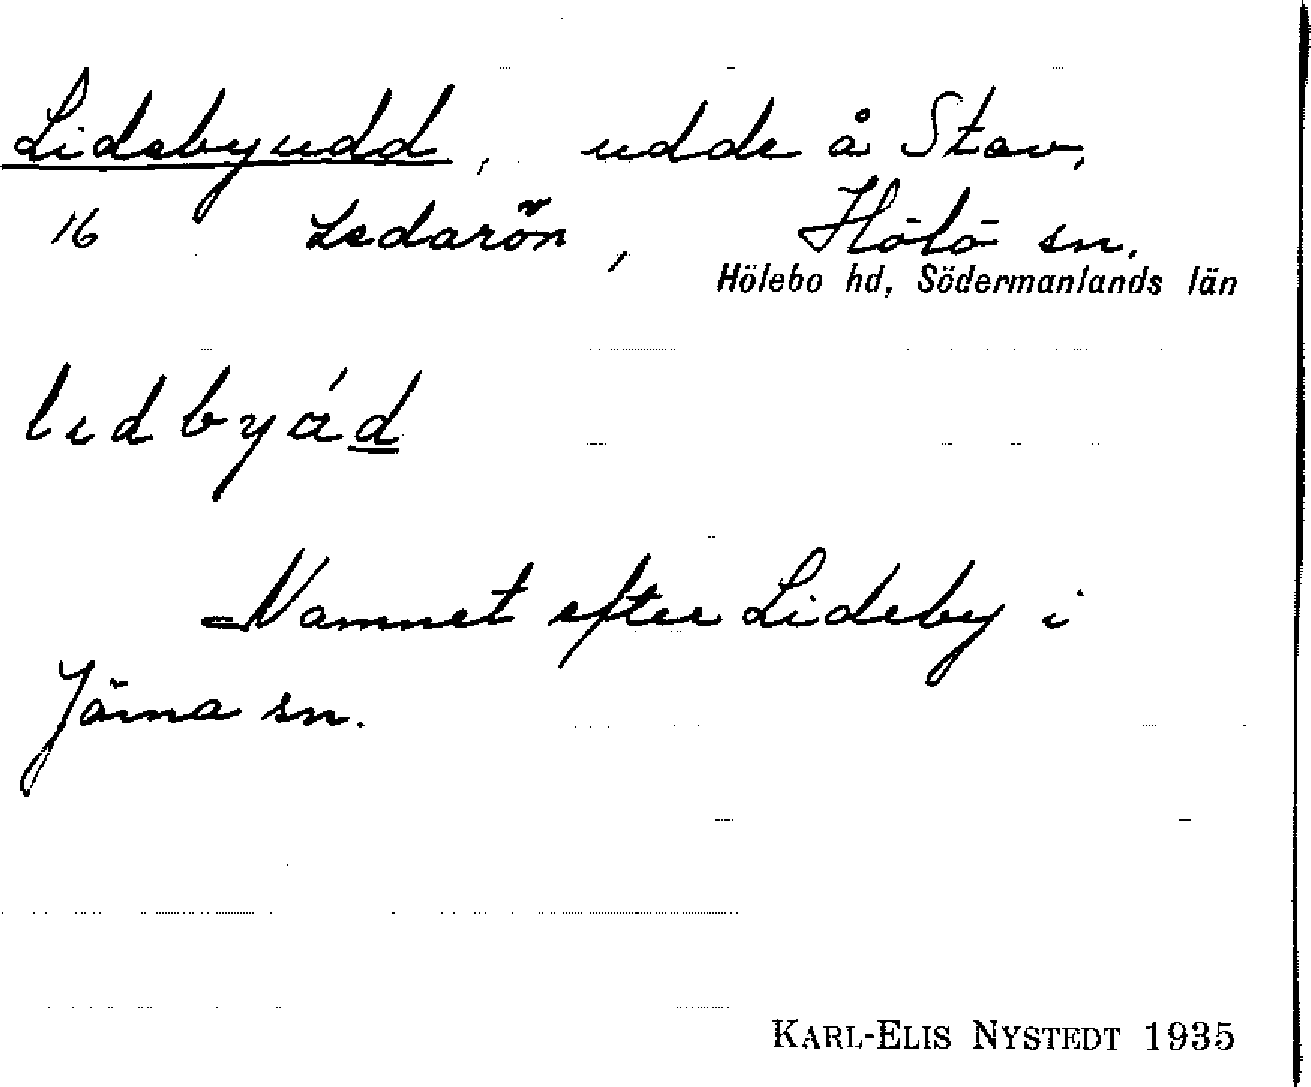 Lidebyudd, udde å Stav,
16 Ledarön, Hölö sn.
Hölebo hd, Södermanlands län
lidbyád
Namnet efter Lideby i
Järna sn.
KARL-ELIS NYSTEDT 1935